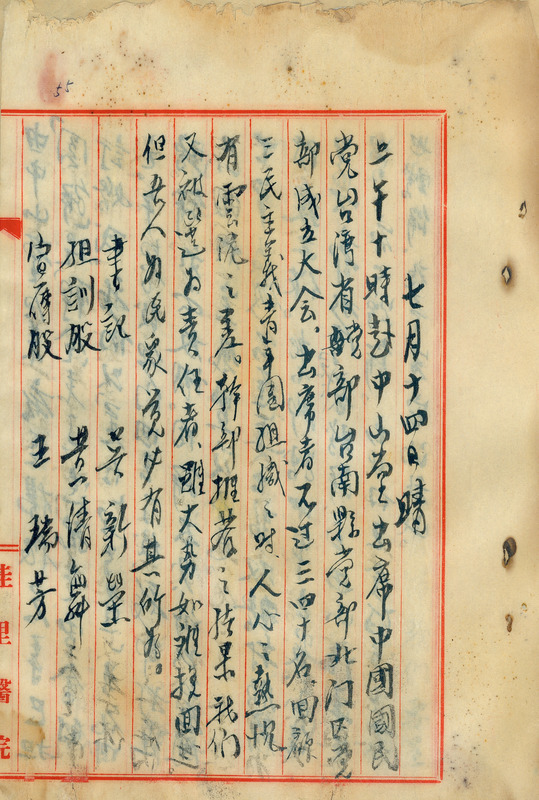 55
七月十四日 晴
上午十時赴中山堂出席中國國民
党台湾省党部台南縣党部北门区党
部成立大会。出席者不过三四十名、回顧
三民主義青年团組織之时人心之熱忱
有雲泥之差。幹部推荐之結果我们
又被選为責任者、雖大勢如难挽回
但吾人为民众党少有其所为。
書記 吴新榮
組訓股 黄清舞
宣傳股 王瑞芳
佳里醫院